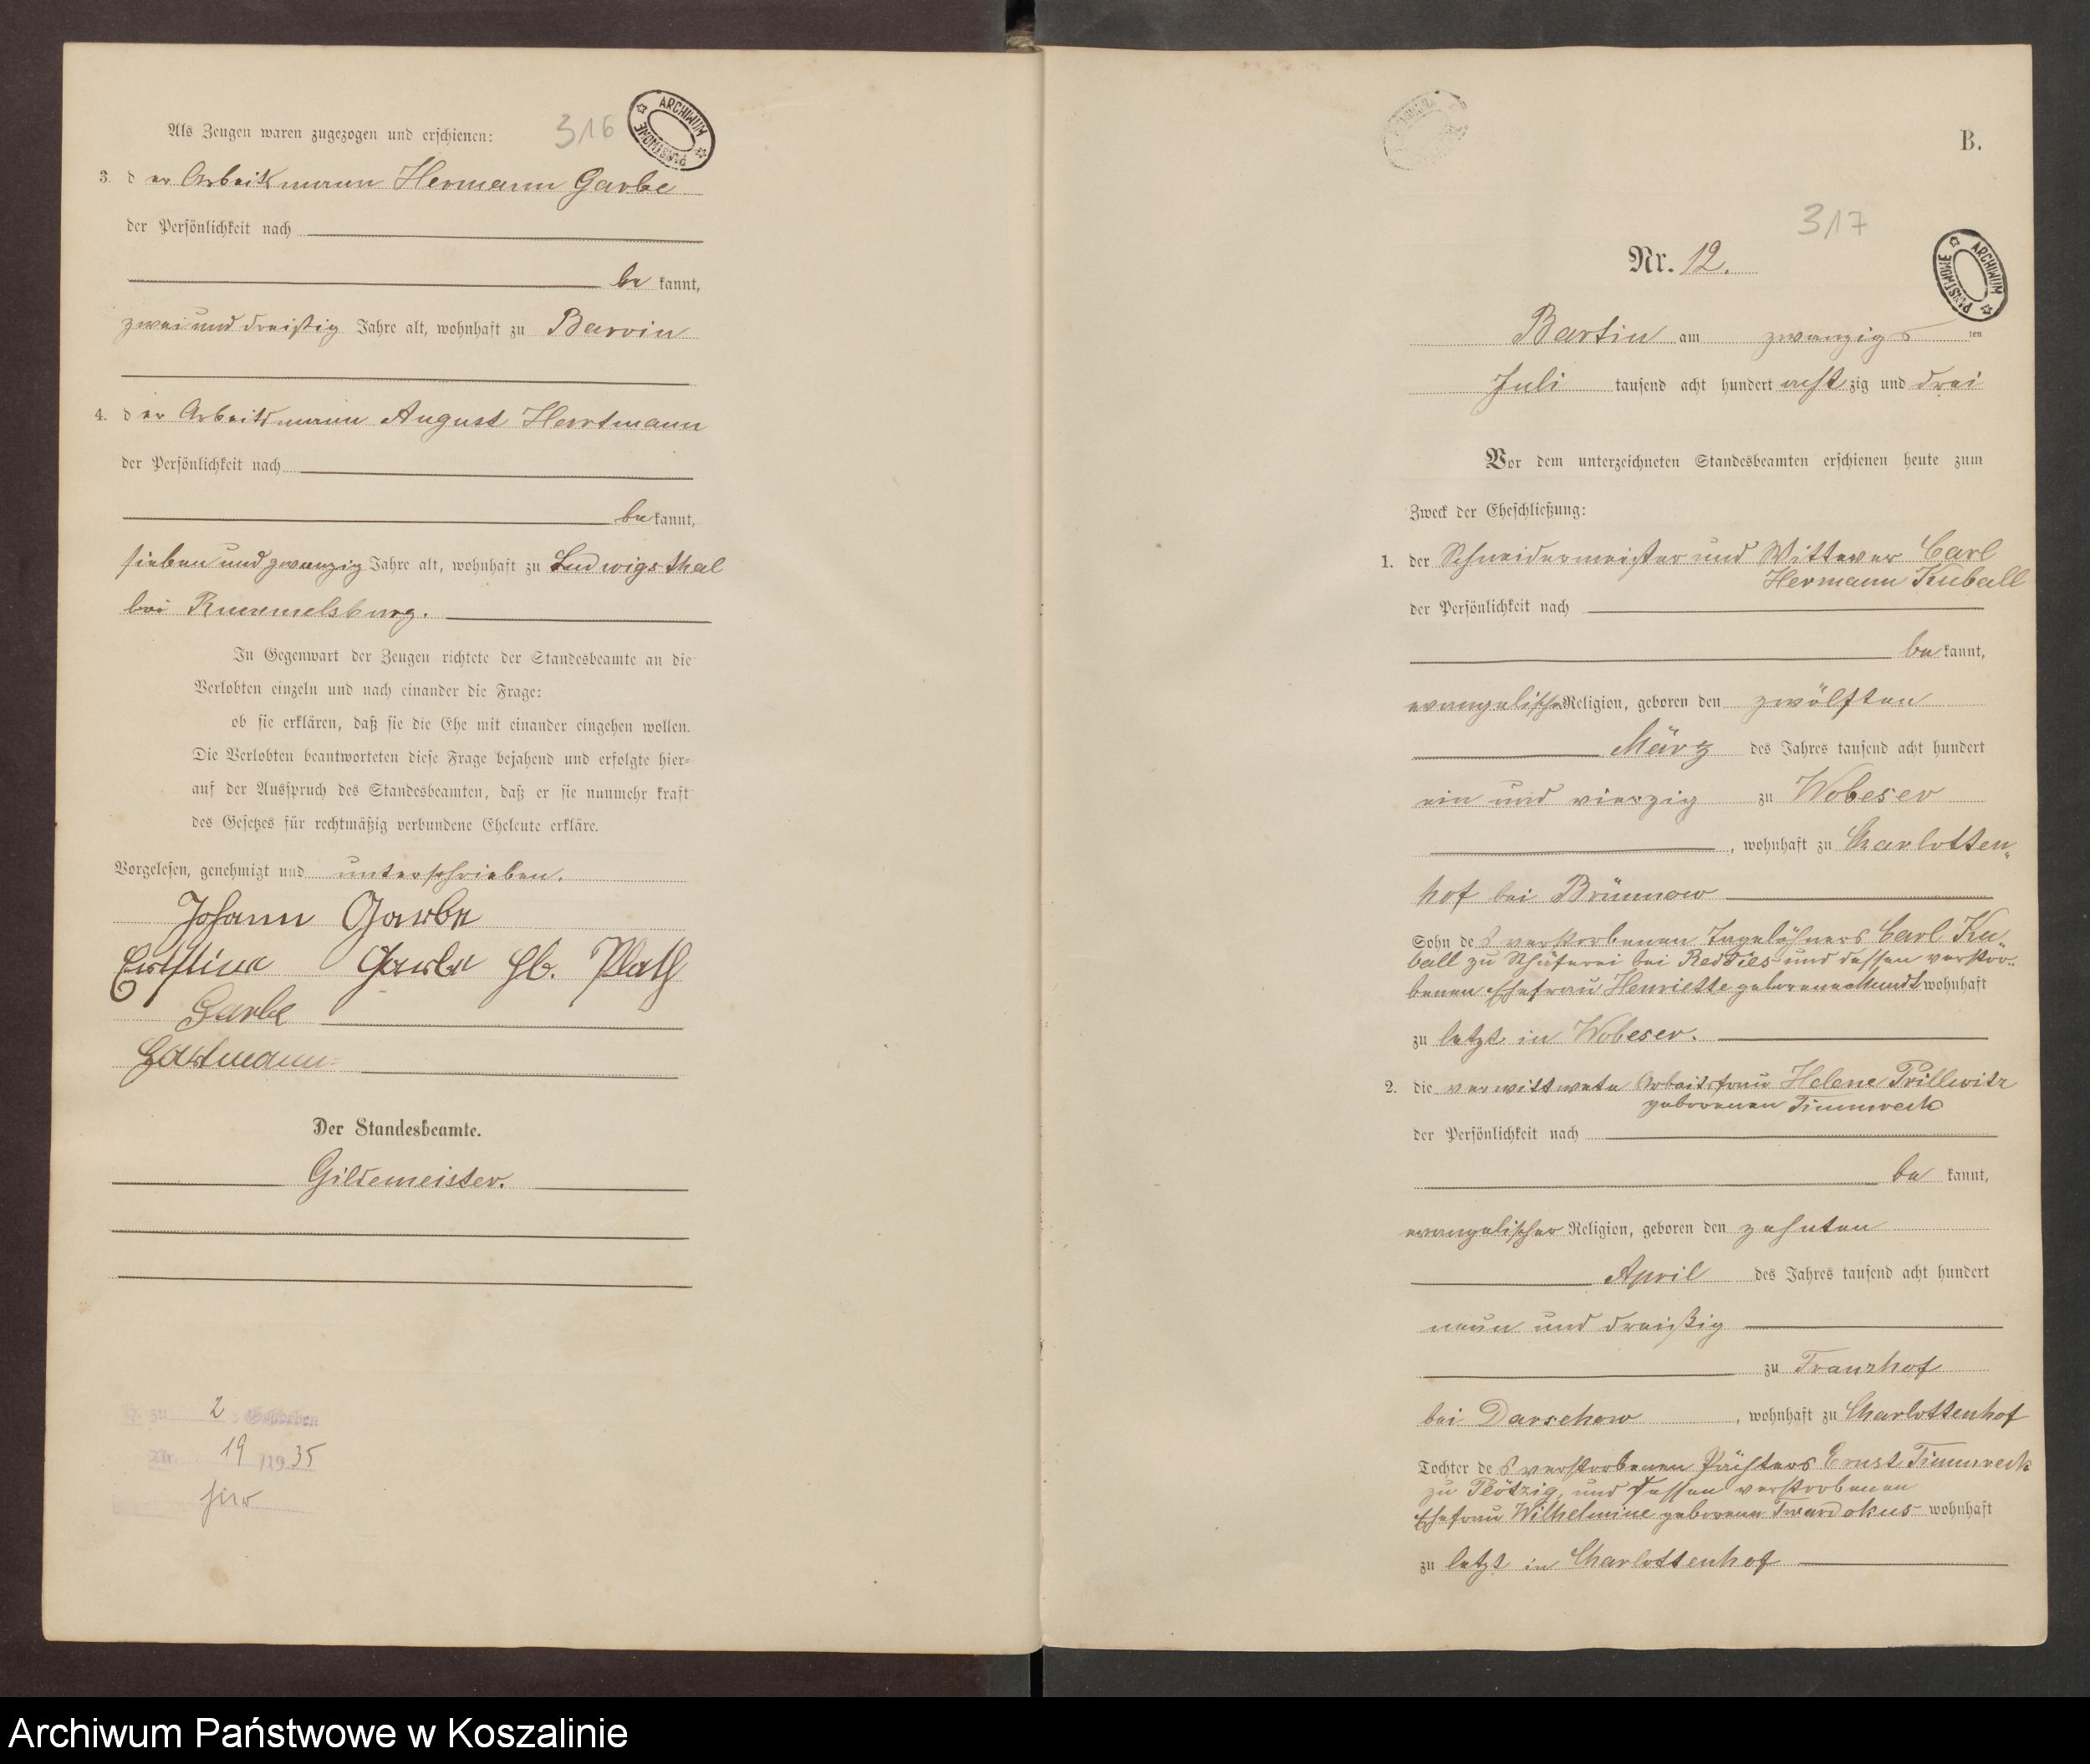 Als Zeugen waren zugezogen und erschienen:
316
ARCHIWUM PAŃSTWOWE
3. der Arbeitsmann Hermann Garbe
der Persönlichkeit nach
be kannt,
zwei und dreißig Jahre alt, wohnhaft zu Barvin
4. der Arbeitsmann August Hartmann
der Persönlichkeit nach
be kannt,
sieben und zwanzig Jahre alt, wohnhaft zu Ludwigsthal
bei Rummelsburg.
In Gegenwart der Zeugen richtete der Standesbeamte an die
Verlobten einzeln und nach einander die Frage:
ob sie erklären, daß sie die Ehe mit einander eingehen wollen.
Die Verlobten beantworteten diese Frage bejahend und erfolgte hier-
auf der Ausspruch des Standesbeamten, daß er sie nunmehr kraft
des Gesetzes für rechtmäßig verbundene Eheleute erkläre.
Vorgelesen, genehmigt und unterschrieben.
Johann Garbe
Garbe gb. Plath
Garbe
Hartmann
Der Standesbeamte.
Gildemeister.
zu 2
Nr. 19 /19 35
B.
317
Nr. 12.
ARCHIWUM PAŃSTWOWE
Bartin am zwanzigsten
Juli tausend acht hundert achtzig und drei
Vor dem unterzeichneten Standesbeamten erschienen heute zum
Zweck der Eheschließung:
1. der Schneidermeister und Wittwer Carl
Hermann Kuball
der Persönlichkeit nach
be kannt,
evangelischer Religion, geboren den zwölften
März des Jahres tausend acht hundert
ein und vierzig zu Wobeser
, wohnhaft zu Charlotten„
hof bei Brünnow
Sohn des verstorbenen Tagelöhners Carl Ku„
ball zu Schäferei bei Reddies und dessen verstor„
benen Ehefrau Henriette geborene Mundt wohnhaft
zu letzt in Wobeser.
2. die verwittwete Arbeitsfrau Helene Prillwitz
geborenen Timmreck
der Persönlichkeit nach
be kannt,
evangelischer Religion, geboren den zehnten
April des Jahres tausend acht hundert
neun und dreißig
zu Franzhof
bei Darschow, wohnhaft zu Charlottenhof
Tochter des verstorbenen Ernst Timmreck
zu Plötzig, und dessen verstorbenen
Ehefrau Wilhelmine geborenen Twardokus wohnhaft
zu letzt in Charlottenhof
Archiwum Państwowe w Koszalinie